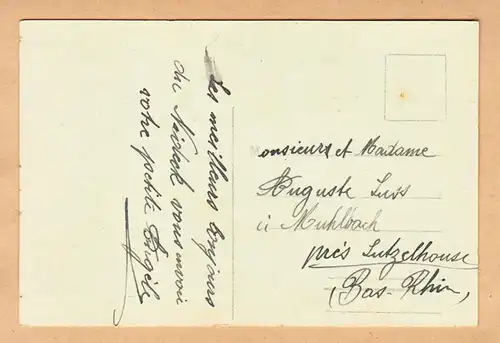 Les meilleurs toujours
du Neideck vous envoie
votre petite Angèle
Monsieur et Madame
Auguste Luss
à Muhlbach
près Lutzelhouse
(Bas-Rhin)